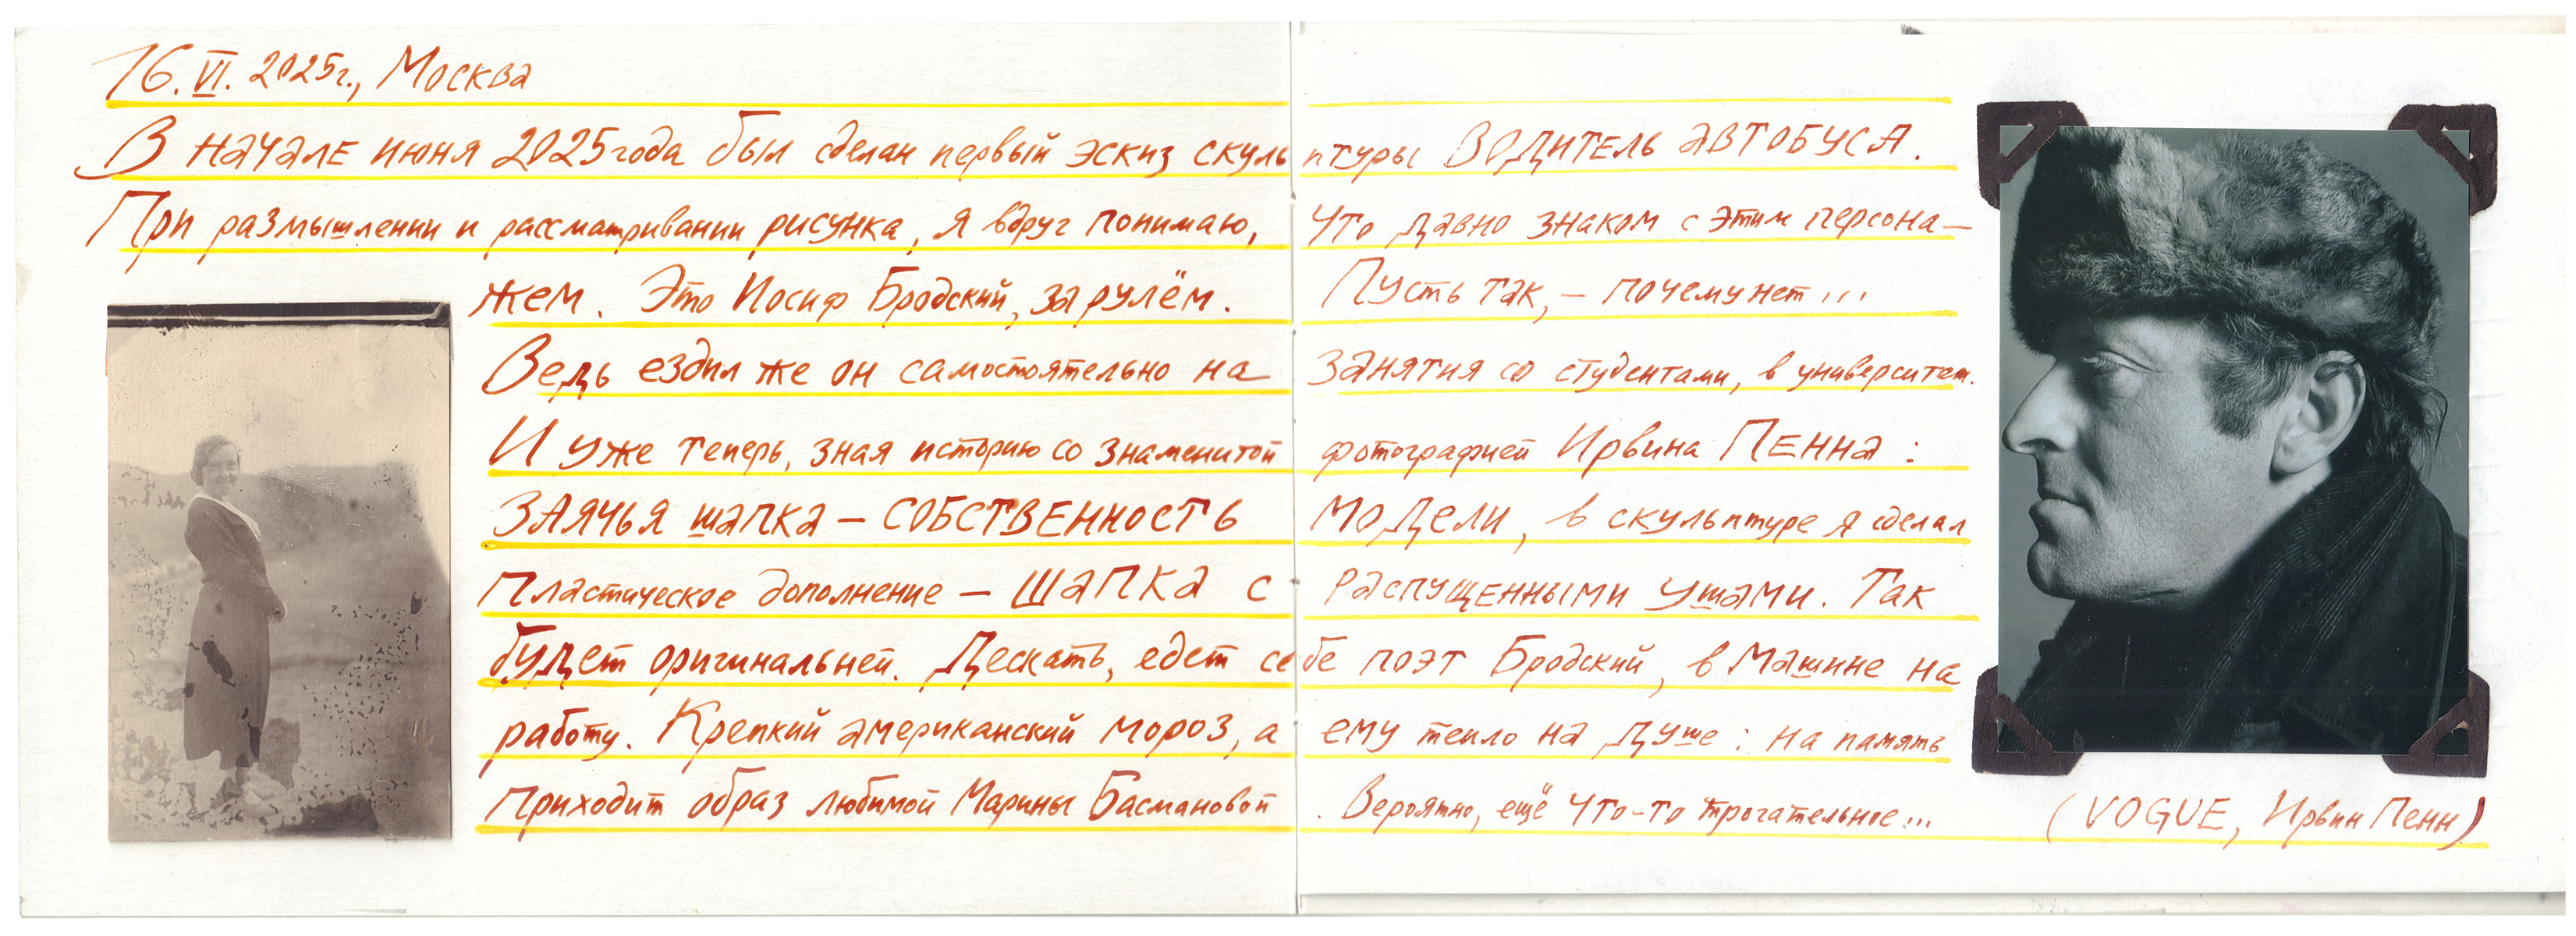 16.VI. 2025г., Москва
В начале июня 2025 года был сделан первый эскиз скульптуры ВОДИТЕЛЬ АВТОБУСА.
При размышлении и рассматривании рисунка, я вдруг понимаю, что давно знаком с этим персона-
жем. Это Иосиф Бродский, за рулём. Пусть так, – почему нет...
Ведь ездил же он самостоятельно на занятия со студентами, в университет.
И уже теперь, зная историю со знаменитой фотографией Ирвина Пенна :
ЗАЯЧЬЯ шапка – СОБСТВЕННОСТЬ МОДЕЛИ, в скульптуре я сделал
Пластическое дополнение – ШАПКА с РАСПУЩЕННЫМИ УШАМИ. Так
будет оригинальней. Дескать, едет себе поэт Бродский, в машине на
работу. Крепкий американский мороз, а ему тепло на душе : на память
приходит образ любимой Марины Басмановой. Вероятно, ещё что-то трогательное...
(VOGUE, Ирвин Пенн)